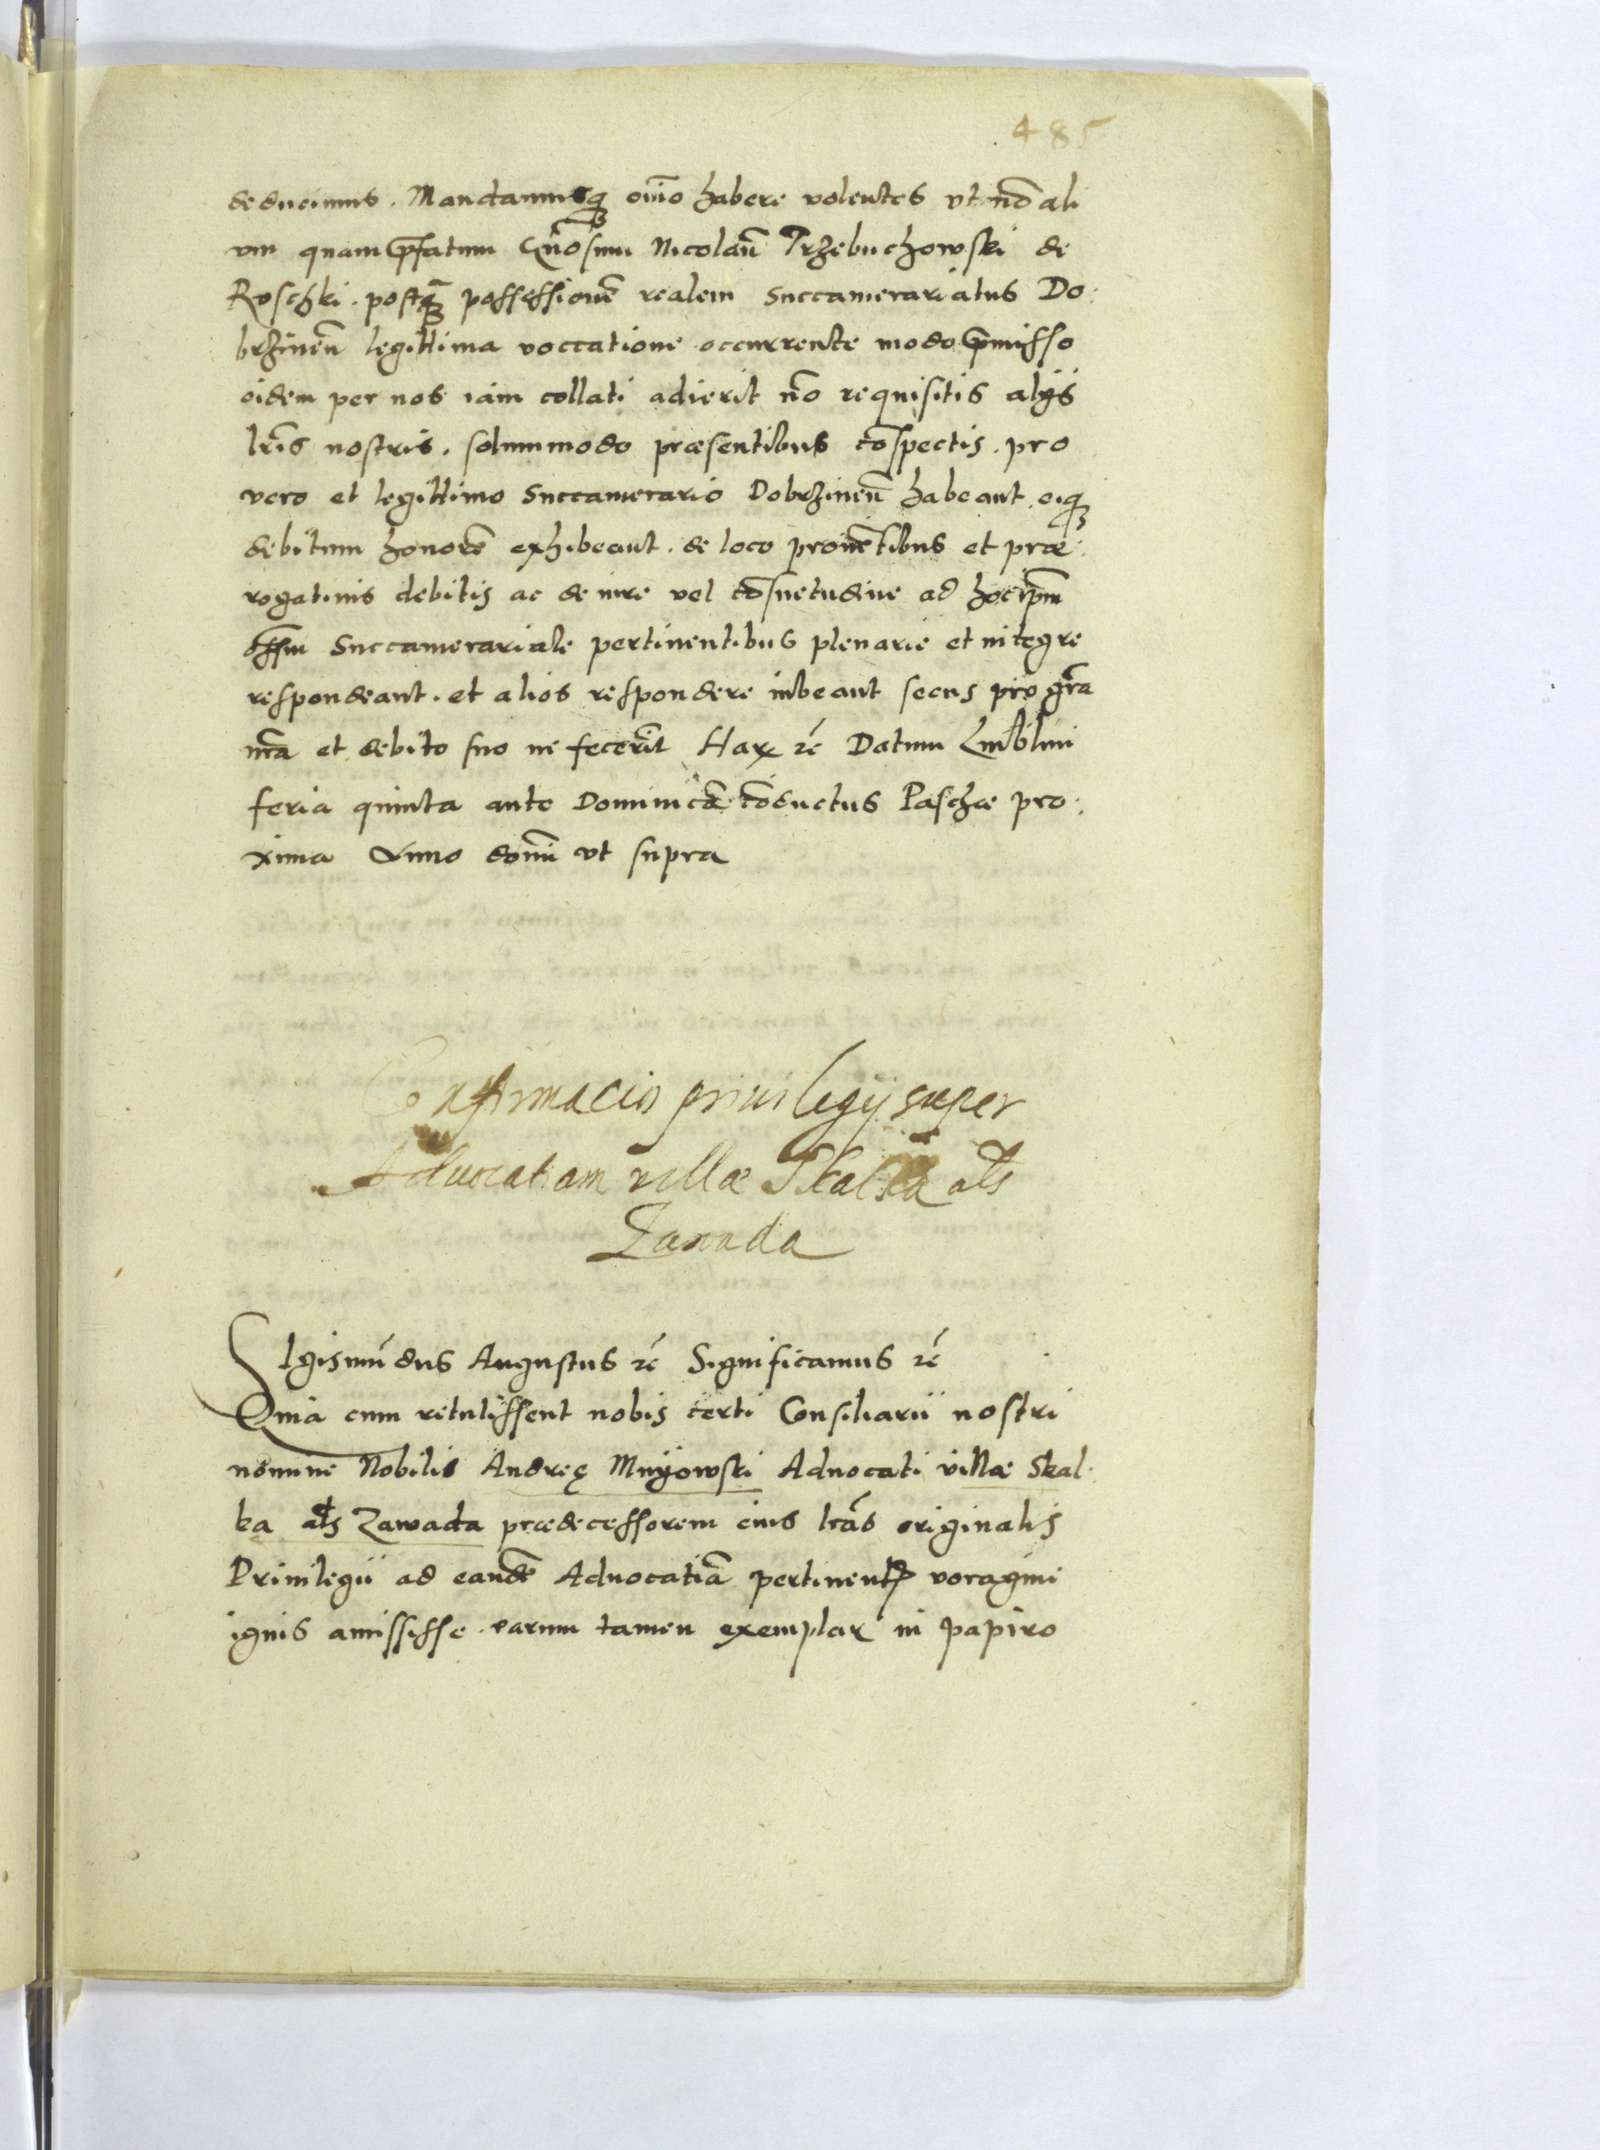 485
deducimus. Mandamusq₃ oīno habere volentes vt nō ali
um quam p̄fatum Gn̄osum Nicolaū Trzebuchowski de
Roschki. postq̄₃ possessionē realem Succamerariatus Do:
brzinen̄ legittima voccatione occurrente modo p̄misso
eidem per nos iam collati adierit nō requisitis alijs
lr̄is nostris. solummodo præsentibus cōspectis. pro
vero et legittimo Succamerario Dobrzinen̄ habeant. eiq₃
debitum honorē exhibeant. de loco prouētibus et præ:
rogatiuis debitis ac de iure vel cōsuetudine ad hoc ip̄m
off̄m Succamerariale pertinentibus plenarie et integre
respondeant. et alios respondere iubeant secus pro gr̄a
nr̄a et debito suo ne fecerīt Har̄ ꝛc̄ Datum Lublini
feria quinta ante Dominicā cōductus Paschæ pro:
xima Anno domī vt supra
Confirmacio priuilegij super
Aduocatiam villæ Skalka al̄s
Zawada
SIgismūdus Augustus ꝛc̄ Significamus ꝛc̄
Quia cum retulissent nobis certi Consiliarii nostri
nomine Nobilis Andreę Mnyowski Aduocati villæ Skal:
ka al̄s Zawada prædecessorem eius lr̄as originalis
Priuilegii ad eandē Aduocatiā pertinentꝭ voragini
ignis amississe. earum tamen exemplar in papiro